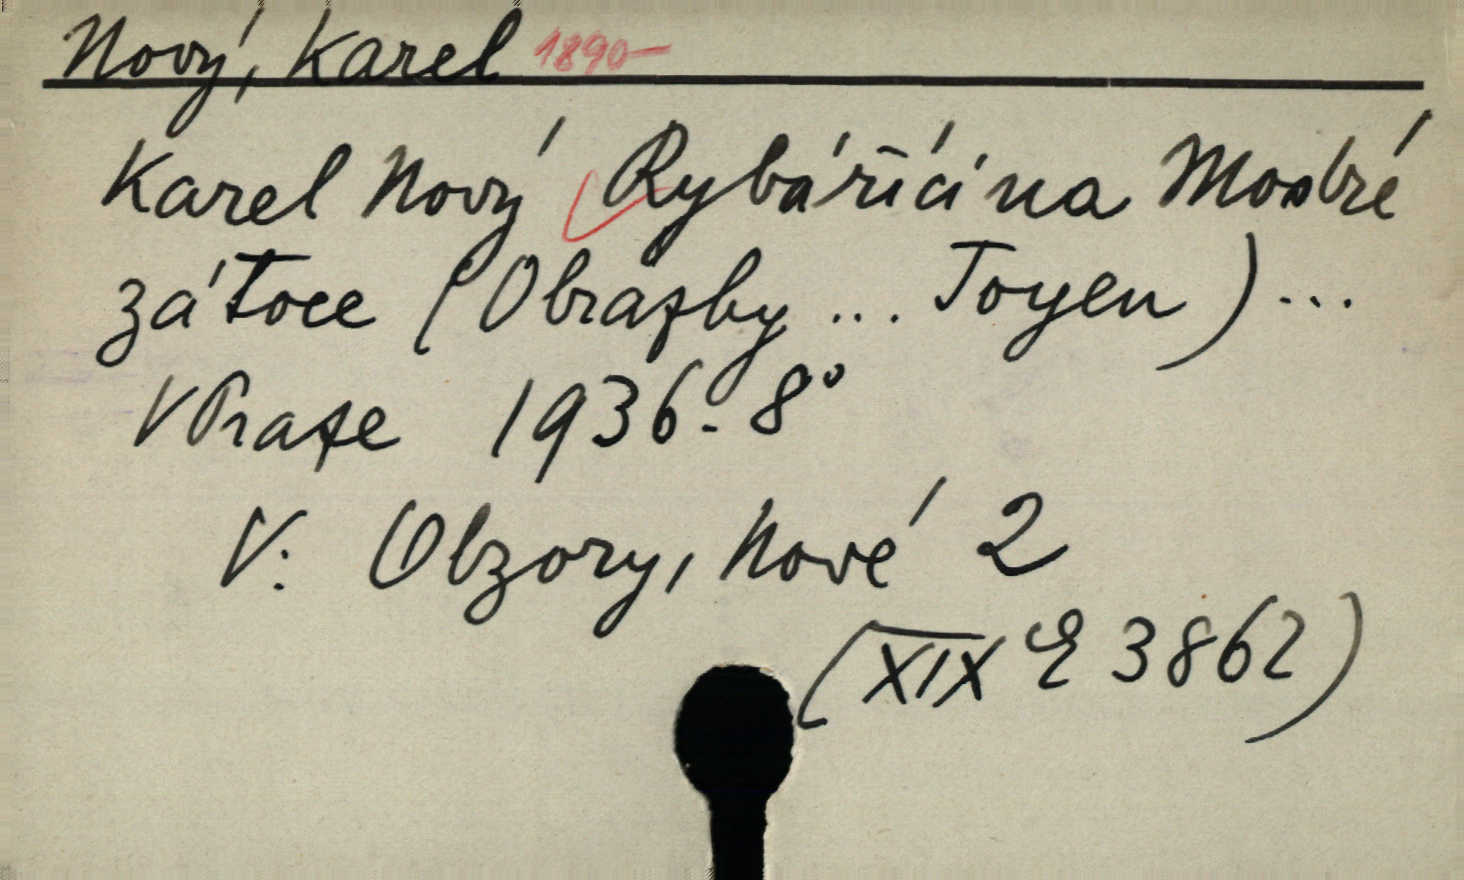 Nový, Karel 1890-
Karel Nový Rybáříci na Modré
zátoce (Obrázky ... Toyen) ...
V Praze 1936.- 8°
V: Obzory, Nové 2
(XIX E 3862)